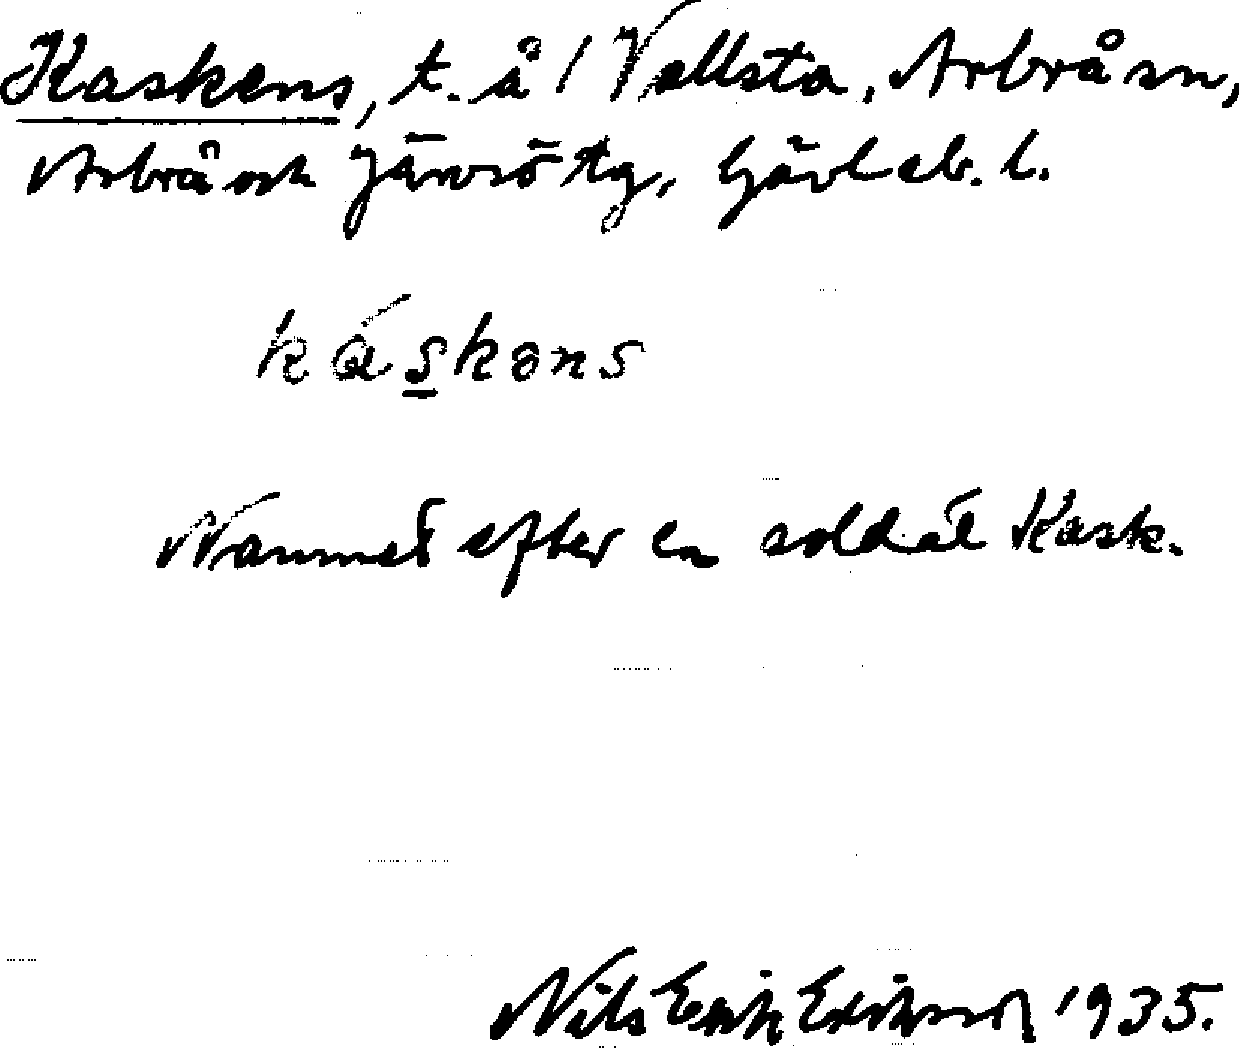 Kaskens, t. å / Vallsta, Arbrå sn,
Arbrå och Järvsö tg, Gävleb. l.
káskens
Namnet efter en soldat Kask.
Nils Erik Eriksson 1935.